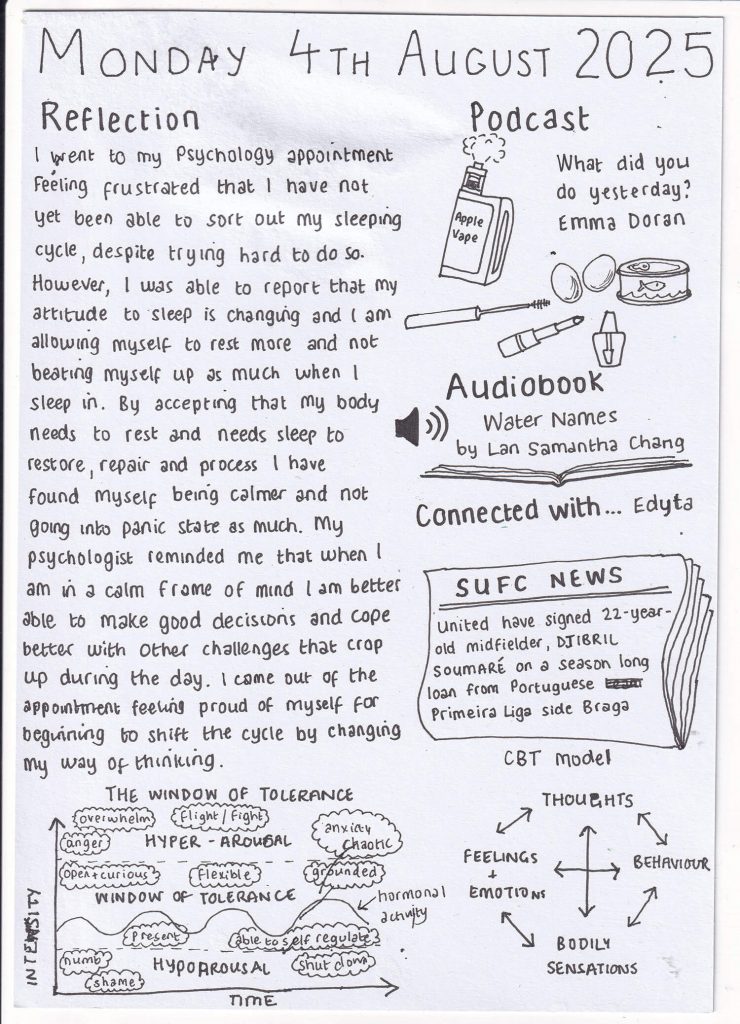 MONDAY 4TH AUGUST 2025
Reflection
I went to my Psychology appointment
feeling frustrated that I have not
yet been able to sort out my sleeping
cycle, despite trying hard to do so.
However, I was able to report that my
attitude to sleep is changing and I am
allowing myself to rest more and not
beating myself up as much when I
sleep in. By accepting that my body
needs to rest and needs sleep to
restore, repair and process I have
found myself being calmer and not
going into panic state as much. My
psychologist reminded me that when I
am in a calm frame of mind I am better
able to make good decisions and cope
better with other challenges that crop
up during the day. I came out of the
appointment feeling proud of myself for
beginning to shift the cycle by changing
my way of thinking.
Podcast
What did you
do yesterday?
Emma Doran
Apple
Vape
Audiobook
Water Names
by Lan Samantha Chang
Connected with... Edyta
SUFC NEWS
United have signed 22-year-
old midfielder, DJIBRIL
SOUMARÉ on a season long
loan from Portuguese
Primeira Liga side Braga
THE WINDOW OF TOLERANCE
overwhelm
flight/fight
anxiety
chaotic
anger
HYPER-AROUSAL
open+curious
flexible
grounded
WINDOW OF TOLERANCE
hormonal
activity
present
able to self regulate
numb
HYPOAROUSAL
shut down
shame
INTENSITY
TIME
CBT model
THOUGHTS
FEELINGS
+
EMOTIONS
BEHAVIOUR
BODILY
SENSATIONS